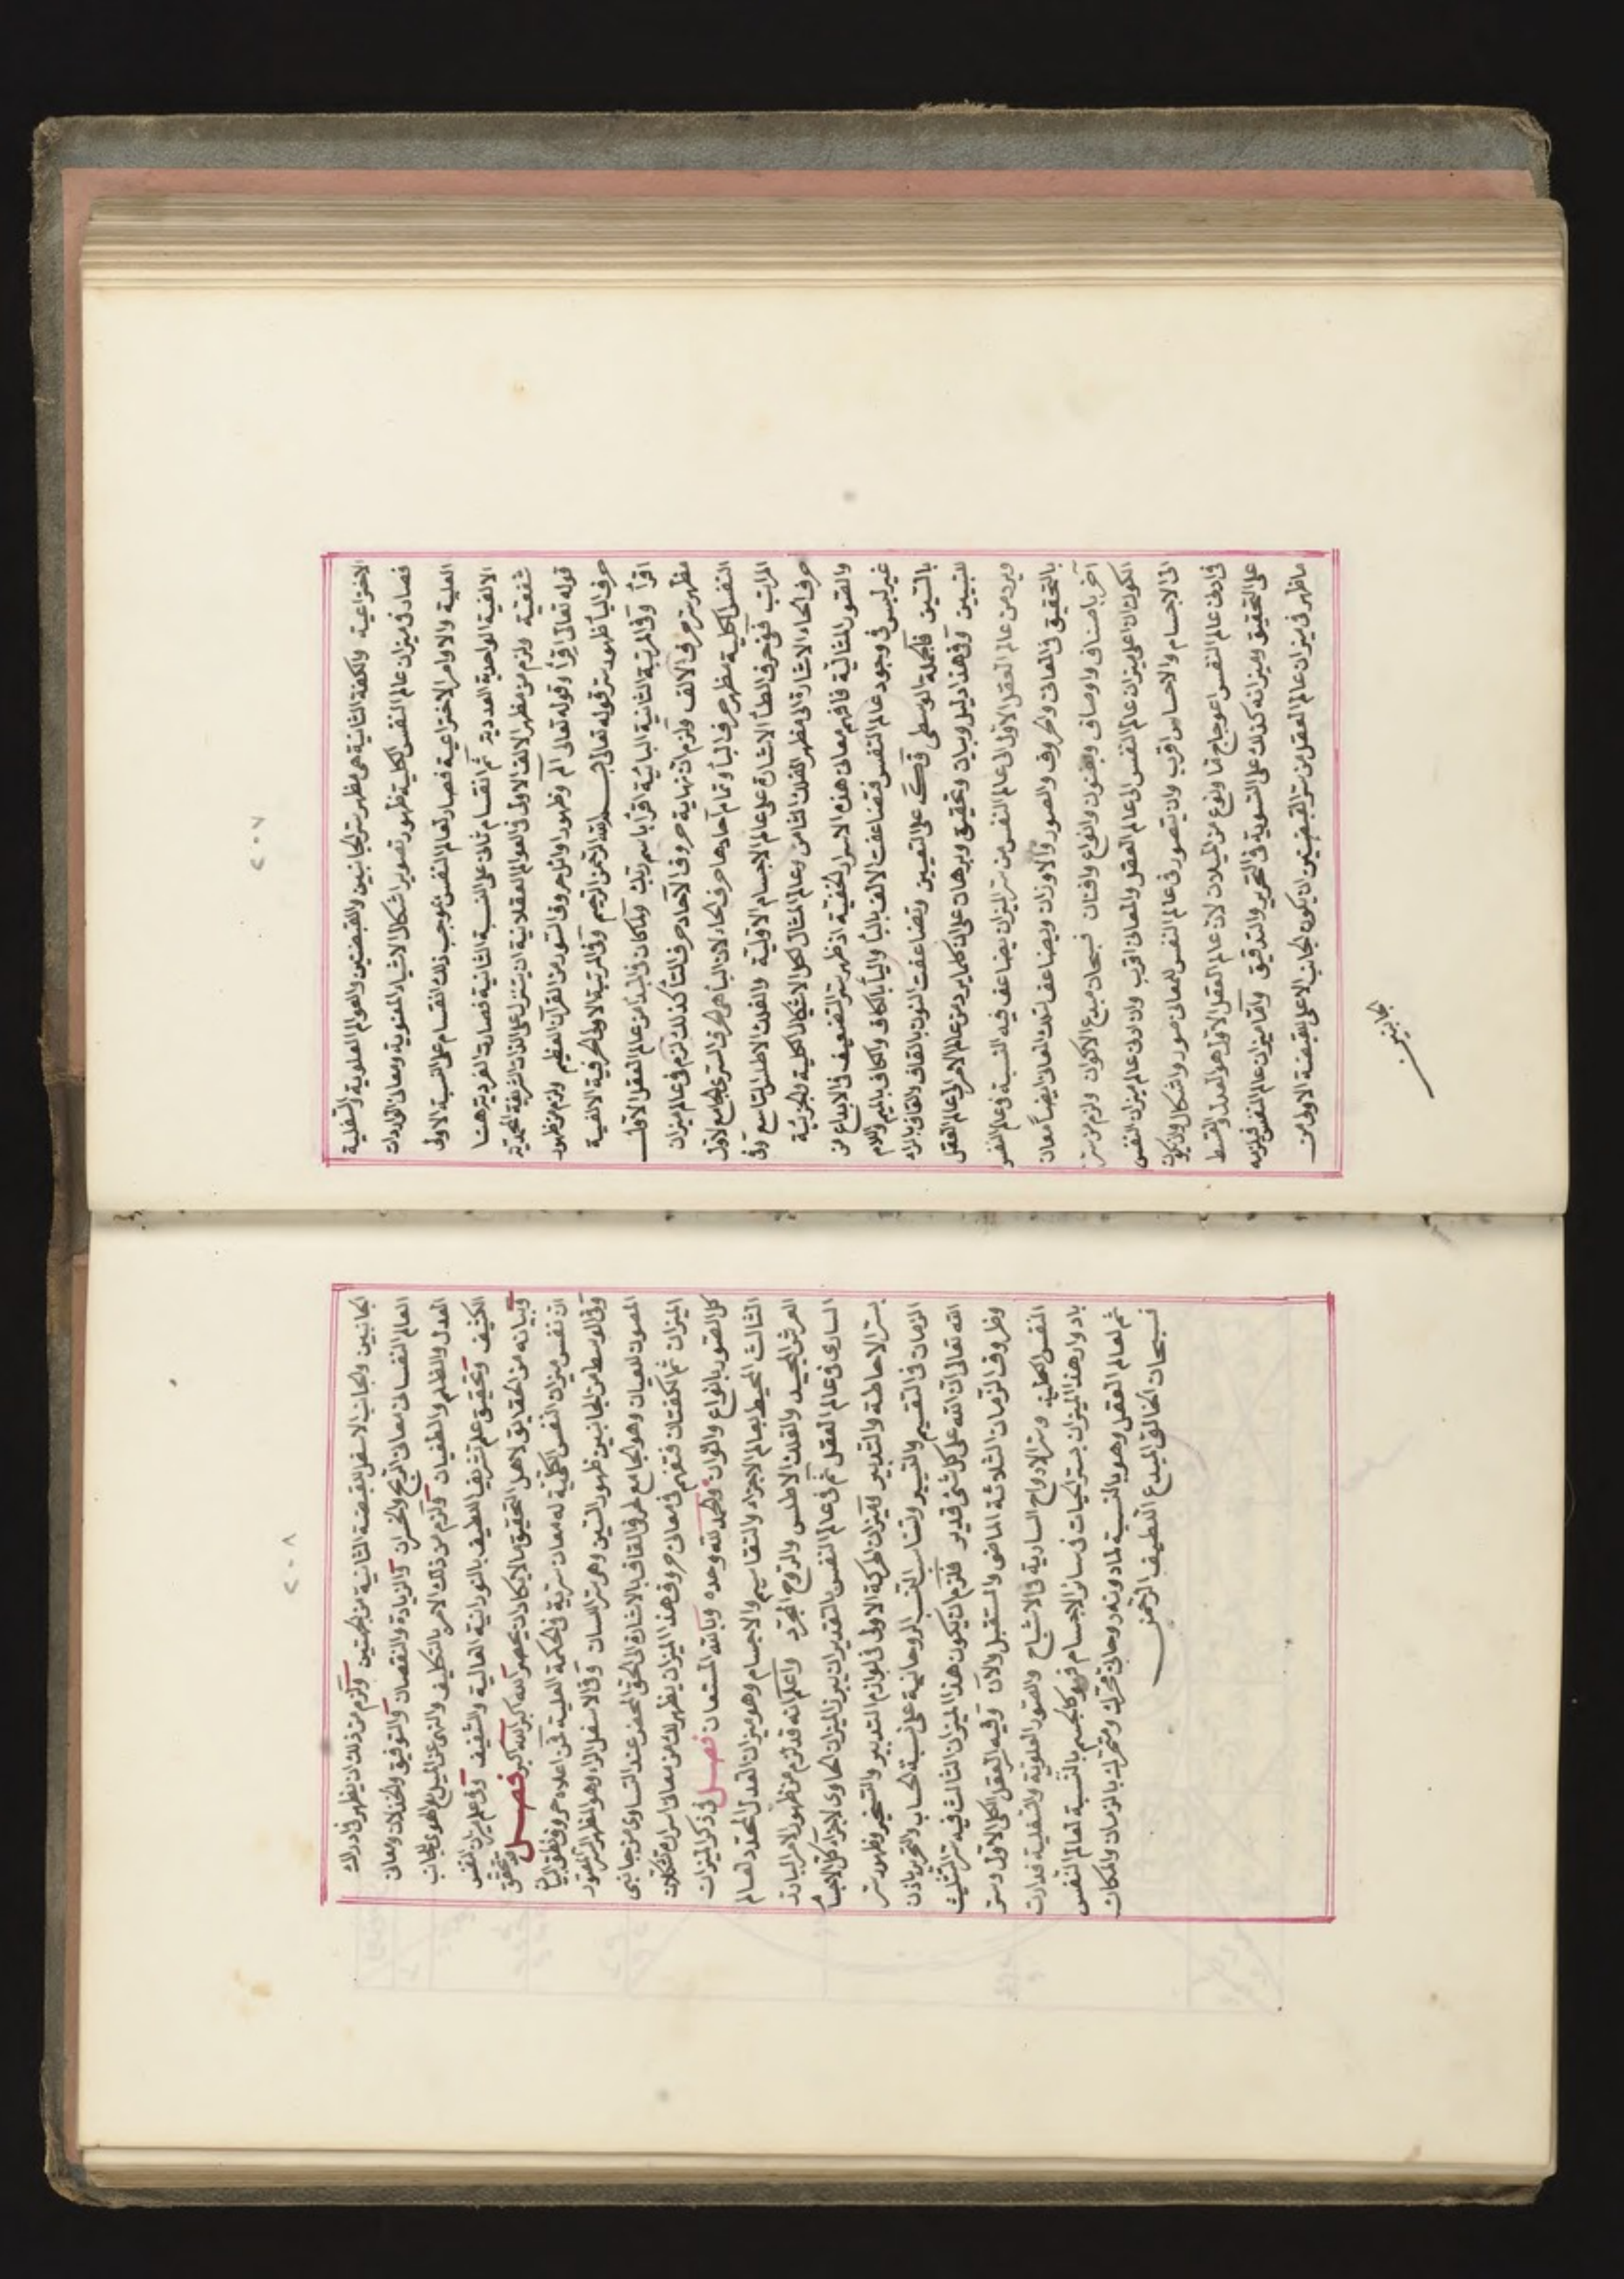 ٢٠٧
الاختراعية والكفة الثانية هى مظهر سر الجانبين والقبضتين والعوالم العلوية والسفلية
فصار فى ميزان عالم النفس الكلية ظهور تصوير اشكال الاشياء المعنوية ومعانى الواردات
العلية والاوامر الاختراعية فصار لعالم النفس بموجب ذلك انقسام على النسبة الاولى
الالفية الواحدية العددية ثم انقسام ثانى على النسبة الثانية فصارت الفردية هنا
شفعية ولزم من مظهر الالف الاولى فى العوالم العقلانية ان يتنزل على الذات الشريفة المحمدية
قوله تعالى اقرأ وقوله تعالى الم وظهور اوائل حروف السور من القرآن العظيم ولزم من ظهور
حرف البأ ظهور سر قوله تعالى بسم الله الرحمن الرحيم وفى المرتبة الاولى الحرفية الالفية
اقرأ وفى المرتبة الثانية البائية اقرأ باسم ربك ولما كان فى المبدأ من عالم العقل الاول
مظهر سر حرف الالف ولزم ان نهاية حروف الآحاد حرف الطأ كذلك لزم فى عالم ميزان
النفس الكلية مظهر حرف البأ وتمام آحادها حرف الحاء لان البأ هى الحرف السرى الجامع لاول
المراتب ففى حرف الطأ الاشارة على عالم الاجسام الاولية والفلك الاطلس التاسع وفى
حرف الحاء الاشارة الى مظهر الفلك الثامن وعالم المثال لكل الاشكال الكلية والجزئية
والصور المثالية فافهم معانى هذه الاسرار الخفية اذ ظهر سر التضعيف فى الابداع من
غير لبس فى وجود عالم النفس فتضاعفت الالف بالبأ واليأ بالكاف والكاف بالميم واللام
بالسين فالجملة الوسطى قـ على التعيين وتضاعفت النون بالقاف والقاف بالراء
للتبيين وفى هذا دليل وبيان وتحقيق وبرهان على ان كلما يرد من عالم الامر الى عالم العقل
ويرد من عالم العقل الاول الى عالم النفس من سر الميزان يضاعف فيه النسبة فى عالم النفس
بالتحقيق فى المعانى والحروف والصور والاوزان ويضاعف تلك المعانى ايضاً معان
آخر باصناف واوصاف وفنون وانواع وافنان فسبحان مبدع الاكوان ولزم من سر
الكون ان اعلى ميزان عالم النفس الى عالم العقل والمعانى اقرب وان ادنى عالم ميزان النفس
الى الاجسام والاحساس اقرب وان يتصور فى عالم النفس للمعانى صور واشكال وان يكون
فى ادنى عالم النفس اعوجاج ما ونوع من الميلان لان عالم العقل الاول هو العدل والقسط
على التحقيق وميزانه كذلك على التسوية فى التحرير والتدقيق وأما ميزان عالم النفس فيلزمه
ماظهر فى ميزان عالم العقل من سر القبضتين ان يكون الجانب الاعلى للقبضة الاولى من
الجانبين
٢٠٨
الجانبين والجانب الاسفل للقبضة الثانية من الجهتين ولزم من ذلك ان يظهر فى ادراك
العالم النفسانى معانى الربح والخسران والزيادة والنقصان والتوفيق والخذلان ومعانى
العدل والظلم والطغيان ولزم من ذلك الامر بالتكليف والنهى عن الميل والهوى لجانب
الكثيف وتحقيق علم تشريف اللطيف بالنورانية العالية والتشفيف وفى علم ميزان النفس
وبيانه من الحقايق لاهل التحقيق ما لا يكاد ان يحصر الله اكبر الله اكبر فصل تحقق
ان نفس ميزان النفس الكلية له معان سرية فى الحكمة العلية فمن اعلاه حروف نطق البيان
وفى الوسط من الجانبين ظهور السين وهو سر اللسان وفى الاسفل الراء وهو المظهر السر المعتود
المصون للعيان وهو الجامع لحرف القاف بالاشارة الى الحق المحض عند التساوى من جانبى
الميزان ثم الكفتان فتفهم فى معانى حروف هذا الميزان يظهر لك من معانى اسراره تشكلات
كل الصور بانواع والوان والحمد لله وحده وبالله المستعان فصل فى ذكر الميزان
الثالث المحيط بعالم الاجزاء والتقاسيم والاجسام وهو ميزان العدل المحدد لعالم
العرش المجيد والفلك الاطلس والروح المجرد واعلم انه قد لزم من ظهور الامر البارز
السارى فى عالم العقل ثم فى عالم النفس بالتقدير ان يبرز الميزان الحاوى لاجزاء كل الاجسأ
بسر الاحاطة والتدبير كميزان الحركة الاولى فى لوازم التدبير والتسخير وظهور سر
الزمان فى التقسيم والتسيير وتناسب النسب الروحانية على نسبة الحساب والتحرير باذن
الله تعالى ان الله على كل شئ قدير فلزم ان يكون هذا الميزان الثالث فيه سر التثليث
وظروف الزمان الثلاثة الماضى والمستقبل والآن وفيه العقل الكلى الاول وسر
النفس الكلية وسر الارواح السارية فى الاشباح والصور العلوية والسفلية فدارت
بادوار هذا الميزان بسر الحيات فى سائر الاجسام فهو كالجسم بالنسبة لعالم النفس
ثم لعالم العقل وهو بالنسبة لمادونه روحانى محرك ومتحرك بالزمان والمكان
فسبحان الخالق المبدع اللطيف الرحمن